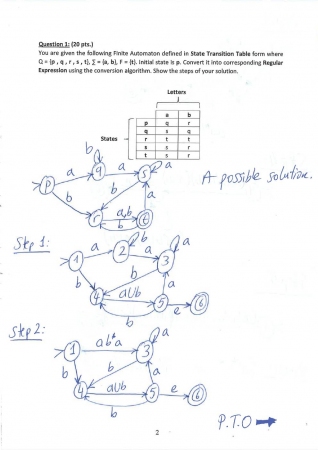 Question 1: (20 pts.)
You are given the following Finite Automaton defined in State Transition Table form where
Q = {p , q , r , s , t}, ∑ = {a, b}, F = {t}. Initial state is p. Convert it into corresponding Regular
Expression using the conversion algorithm. Show the steps of your solution.
Letters
a b
p q r
q s q
States r t t
s s r
t s r
b
a a a
p q s
b b a
r a,b t
b
A possible solution.
Step 1:
b
a 2 a a
1 3
b b a
4 aUb 5 e 6
b
Step 2:
1 ab*a 3 a
b b a
4 aUb 5 e 6
b
P.T.O →
2